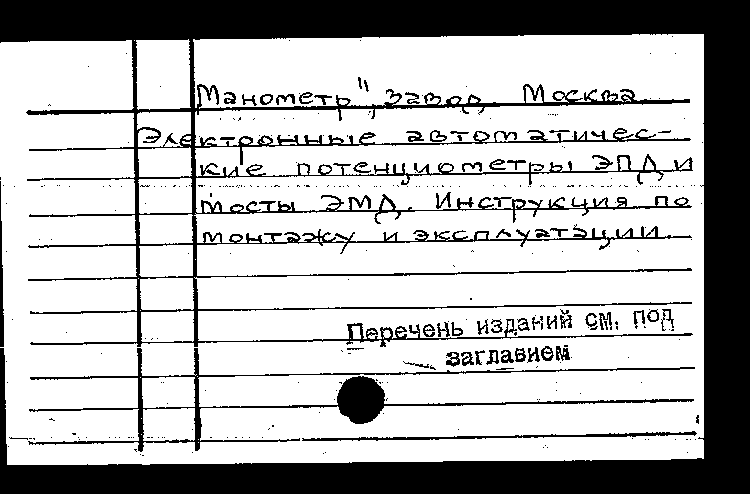 Манометр", завод, Москва
Электронные автоматичес-
кие потенциометры ЭПД и
мосты ЭМД. Инструкция по
монтажу и эксплуатации.
Перечень изданий см. под
заглавием